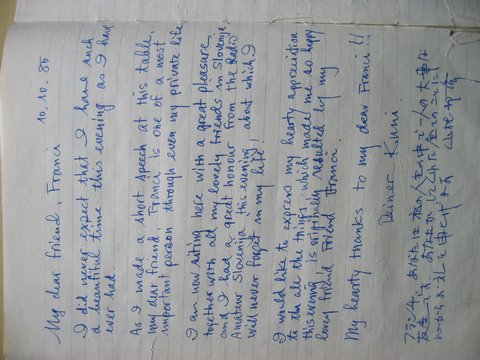 10.10.85
My dear friend, Franci
I did never expect that I have such
a beautiful time this evening as I have
ever had.
As I made a short speech at this table,
my dear friend, Franci is one of a most
important person through even my private life.
I am now siting here with a great pleasure
together with all my lovely friends in Slovenija,
and I had a great honour from the Radio
Amateur Slovenija this evening about which I
will never forget in my life!
I would like to express my hearty appreciation
to the all the things, which made me so happy
this evening is originally resulted by my
lovely friend Franci.
My hearty thanks to my dear Franci!!
Kuni
フランチ、あなたは私の人生の中で一人の大事な
友達です。あなたが
心からお礼を申し上げます